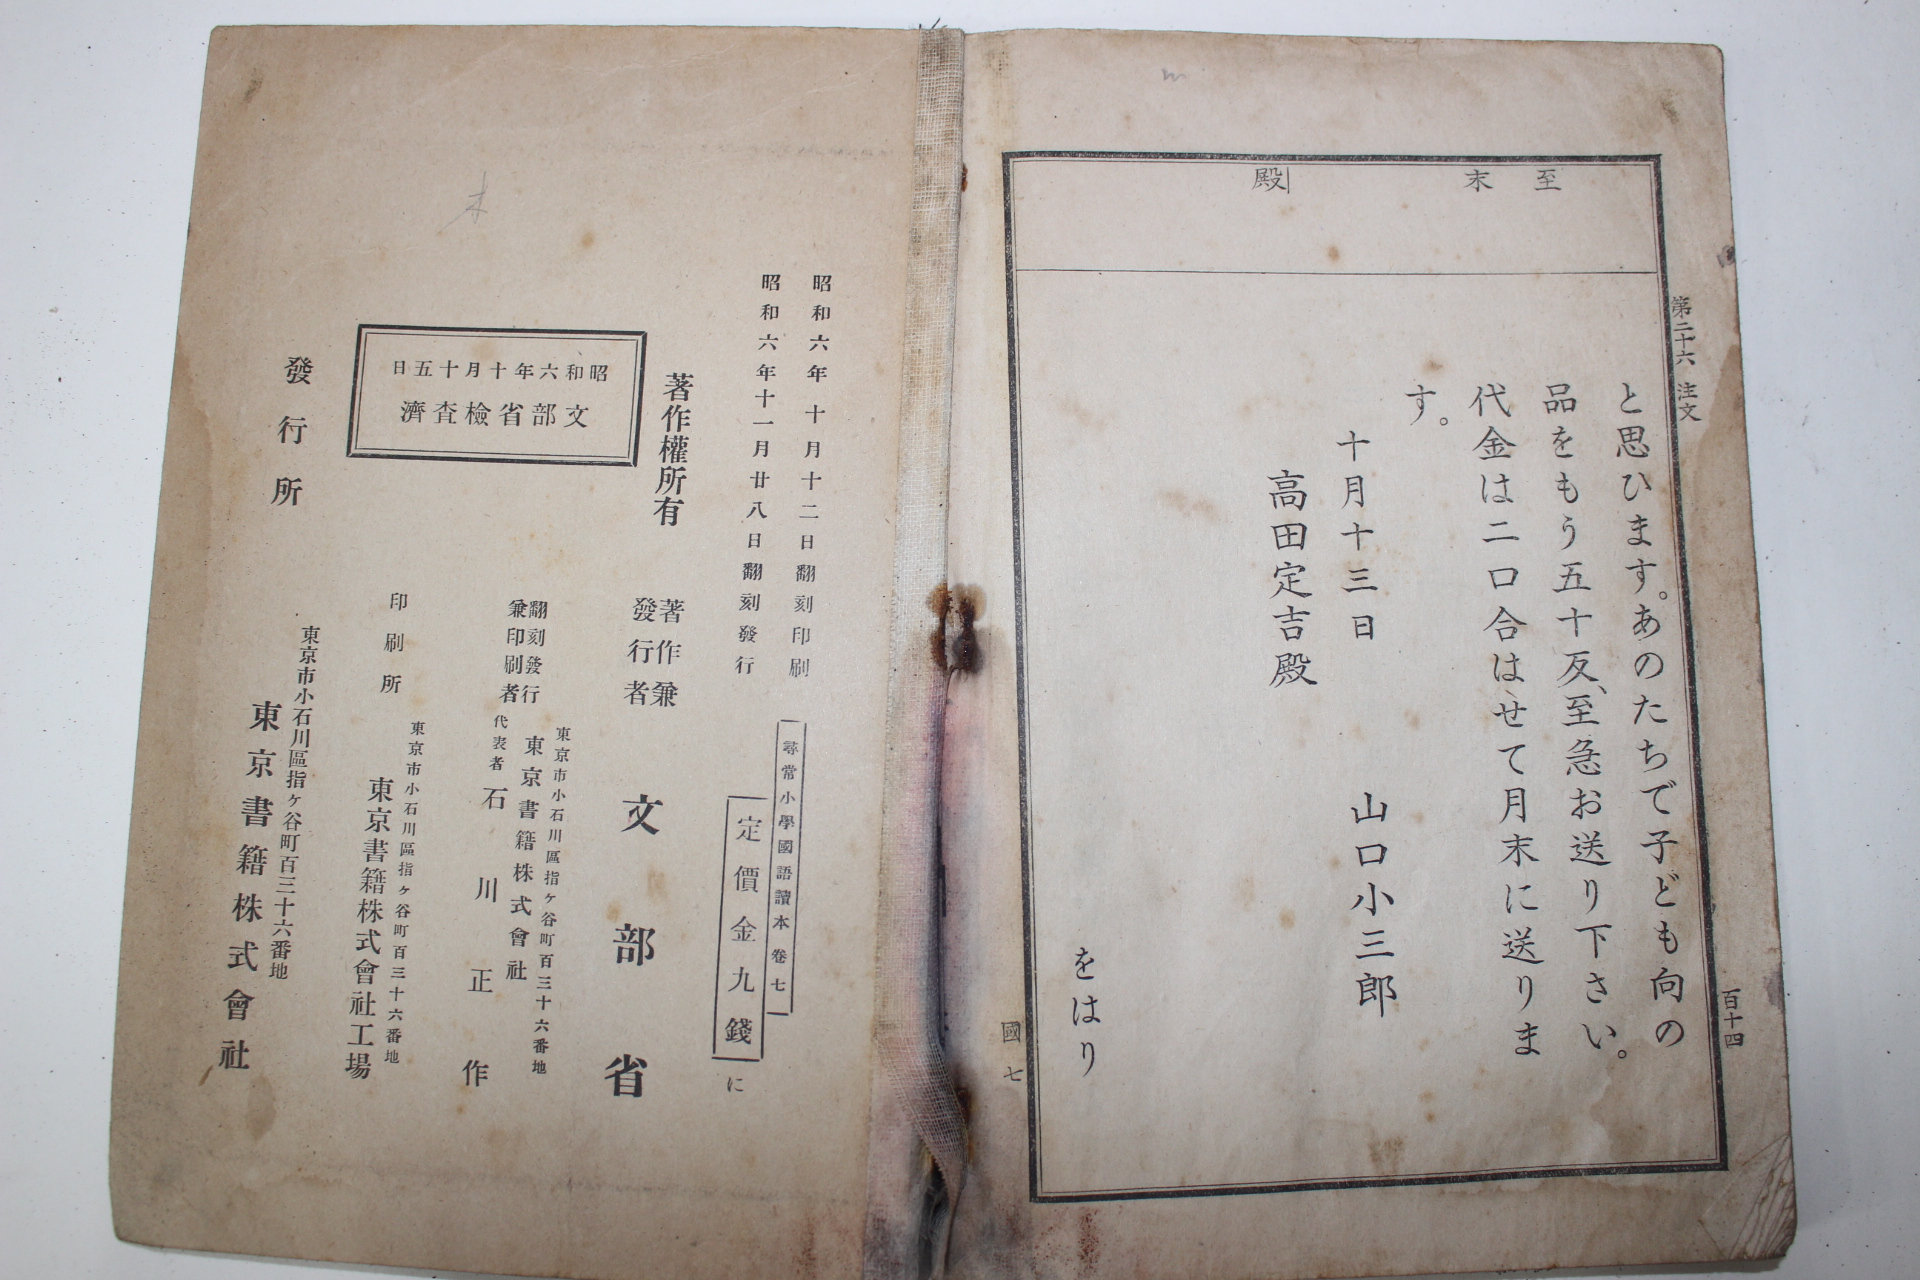 第二十六 注文
百十四
至
末
殿
と思ひます。あのたちで子ども向の
品をもう五十反、至急お送り下さい。
代金は二口合はせて月末に送りま
す。
十月十三日
山口小三郎
高田定吉殿
をはり
國七
昭和六年十月十二日翻刻印刷
昭和六年十一月廿八日翻刻發行
尋常小學國語讀本卷七
定價金九錢
に
著作權所有
著作兼
發行者
文部省
昭和六年十月十五日
文部省檢査濟
翻刻發行
兼印刷者
東京市小石川區指ヶ谷町百三十六番地
東京書籍株式會社
代表者 石川正作
印刷所
東京市小石川區指ヶ谷町百三十六番地
東京書籍株式會社工場
發行所
東京市小石川區指ヶ谷町百三十六番地
東京書籍株式會社